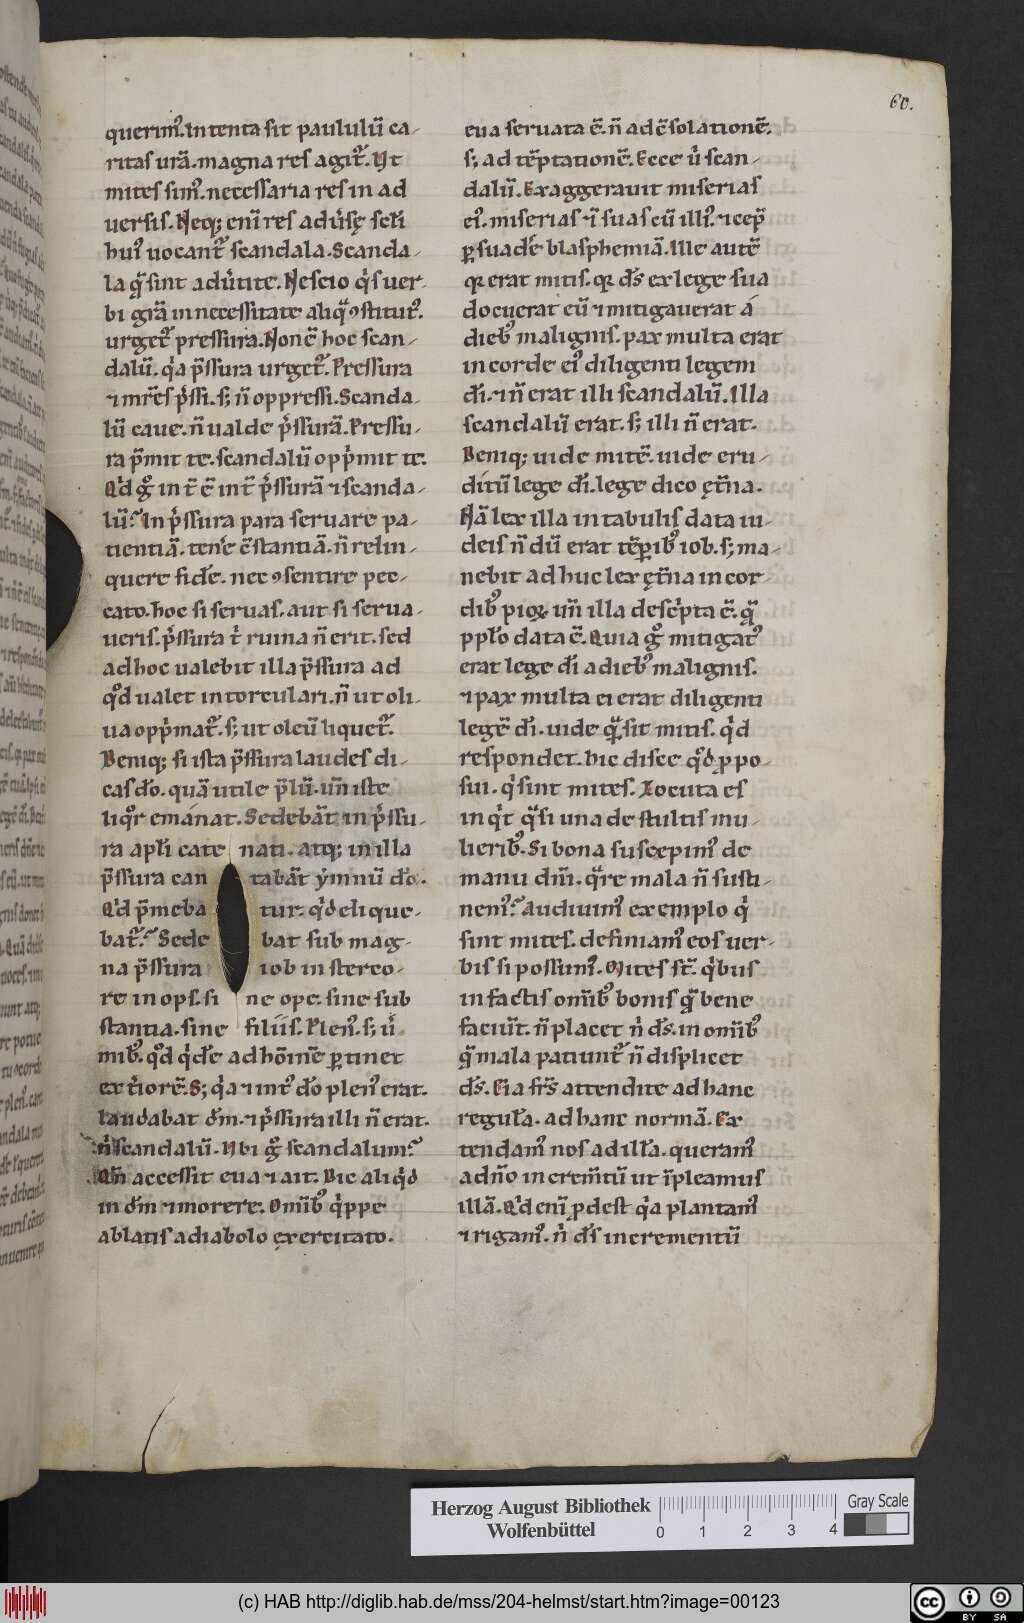 60.
querim᷒. Intenta sit paululū ca-
ritas urā. magna res agit᷑. Vt
mites sim᷒. necessaria res in ad
uersis. Neq; eni̅ res adu̓sę sc̄li
hui᷒ uocant᷑ scandala. Scanda-
la q̄ sint adu̓tite. Nescio q̓s uer-
bi gr̄a in necessitate aliq̄ ꝯstitut᷒.
urget᷑ pressura. Non ē hoc scan-
dalū. q̓a p̄ssura urget᷑. Pressura
⁊ mr̄es p̓ssi. s; n̄ oppressi. Scanda-
lū caue. n̄ ualde p̓ssurā. Pressu-
ra p̄mit te. scandalū opp̓mit te.
Q̓d g̊ int̄ ē int̄ p̓ssurā ⁊ scanda-
lū? In p̓ssura para seruare pa-
tientiā. tene ꝯstantiā. n̄ relin-
quere fidē. nec ꝯsentire pec-
cato. hoc si seruas. aut si serua-
ueris. p̓ssura t̓ ruina n̄ erit. sed
ad hoc ualebit illa p̄ssura ad
q̊d ualet in torculari. n̄ ut oli-
ua opp̓mat᷑. s; ut oleū liquet᷑.
Deniq; si ista p̄ssura laudes di-
cas dō. quā utile p̄lū. un̄ iste
liq̊r emánat. Sedebāt in p̓ssu-
ra apl̄i cate nati. atq; in illa
p̄ssura can tabāt ymnū dō.
Q̓d p̄meba tur. q̓d elique-
bat᷑? Sede bat sub mag-
na p̄ssura iob in sterco-
re inops. si ne ope. sine sub
stantia. sine filiis. Plen᷒. s; u̓
mib᷒. q̊d q̓dē ad hōinē ꝑtinet
ext̓iorē. S; q̓a ⁊ int᷒ dō plen᷒ erat.
laudabat dm̄. ⁊ p̓ssura illi n̄ erat.
n̓ scandalū. Vbi g̊ scandalum?
Qn̄ accessit eua ⁊ ait. Dic aliq̓d
in dm̄ ⁊ morere. Omīb᷒ q̓ppe
ablatis a diabolo exercitato.
eua seruata ē. n̄ ad ꝯsolationē.
s; ad tēptationē. Ecce u̓ scan-
dalū. Exaggerauit miserias
ei᷒. miserias ⁊ı̄ suas cū illi᷒. ⁊ cep̄
ꝑsuadé blasphemiā. Ille autē
qꝛ erat mitis. qꝛ ds̄ ex lege sua
docuerat eū ⁊ mitigauerat á
dieb᷒ malignis. pax multa erat
in corde ei᷒ diligenti legem
dī. ⁊ n̄ erat illi scandalū. Illa
scandalū erat. s; illi n̄ erat.
Deniq; uide mitē. uide eru-
ditū lege dī. lege dico ęt̄na.
Nā lex illa in tabulis data iu-
deis n̄dū erat tēꝑib᷒ iob. s; ma-
nebit adhuc lex ęt̄na in cor
dib᷒ pioꝝ. un̄ illa desc̓pta ē. q̄
ppl̄o data ē. Quia g̊ mitigat᷒
erat lege dī a dieb᷒ malignis.
⁊ pax multa ei erat diligenti
legē dī. uide q̄ sit mitis. q̓d
respondet. hic disce q̊d ꝓpo-
sui. q̓ sint mites. Locuta es
inq̓t q̄si una de stultis mu-
lierib᷒. Si bona suscepim᷒ de
manu dn̄i. q̄re mala n̄ susti-
nem᷒? Audiuim᷒ exemplo q̓
sint mites. definiam᷒ eos uer-
bis si possum᷒. Mites st̄. q̓bus
in factis omīb᷒ bonis q̄ bene
faciūt. n̄ placet n̓ ds̄. in omīb᷒
q̄ mala patiunt᷑ n̄ displicet
ds̄. Eia fr̄s attendite ad hanc
regulā. ad hanc normā. Ex
tendam᷒ nos ad illā. queram᷒
adn̄o increm̄tū ut īpleamus
illā. Q̓d enī ꝓdest q̓a plantam᷒
⁊ rigam᷒. n̓ ds̄ incrementū
Herzog August Bibliothek
Wolfenbüttel
0 1 2 3 4
Gray Scale
(c) HAB http://diglib.hab.de/mss/204-helmst/start.htm?image=00123
cc BY SA